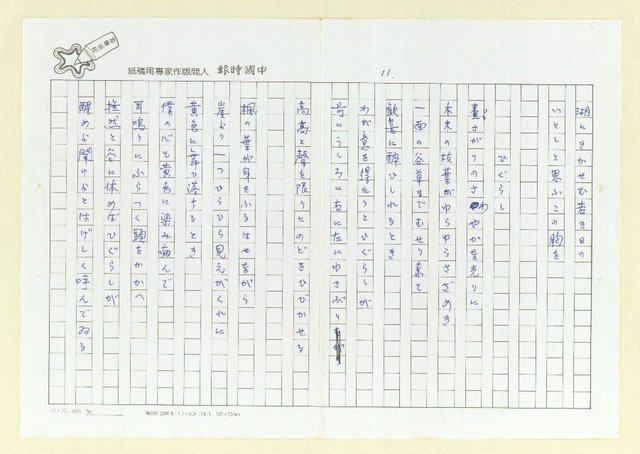 中國時報
人間版作家專用稿紙
11.
湖にきかせむ若き日の
いとしと思ふこの胸を
ひぐらし
晝さがりのさわやかな光りに
木末の枝葉がゆらゆらさざめき
一面の谷草までむせり來て
歓喜に醉ひしれるとき
わが意を得たりとひぐらしが
うしろに右に左にゆさぶり
高高と聲を限りにのどをひびかせる
楓の葉が身をふるはせながら
崖より一つひらひら見えがくれに
黄色に舞ひ落ちるとき
僕の心も黄色に染み痛んで
耳鳴りにふらつく頭をかかへ
撫然と谷に休めばひぐらしが
醒めな聞けよとはげしく呼んでゐる